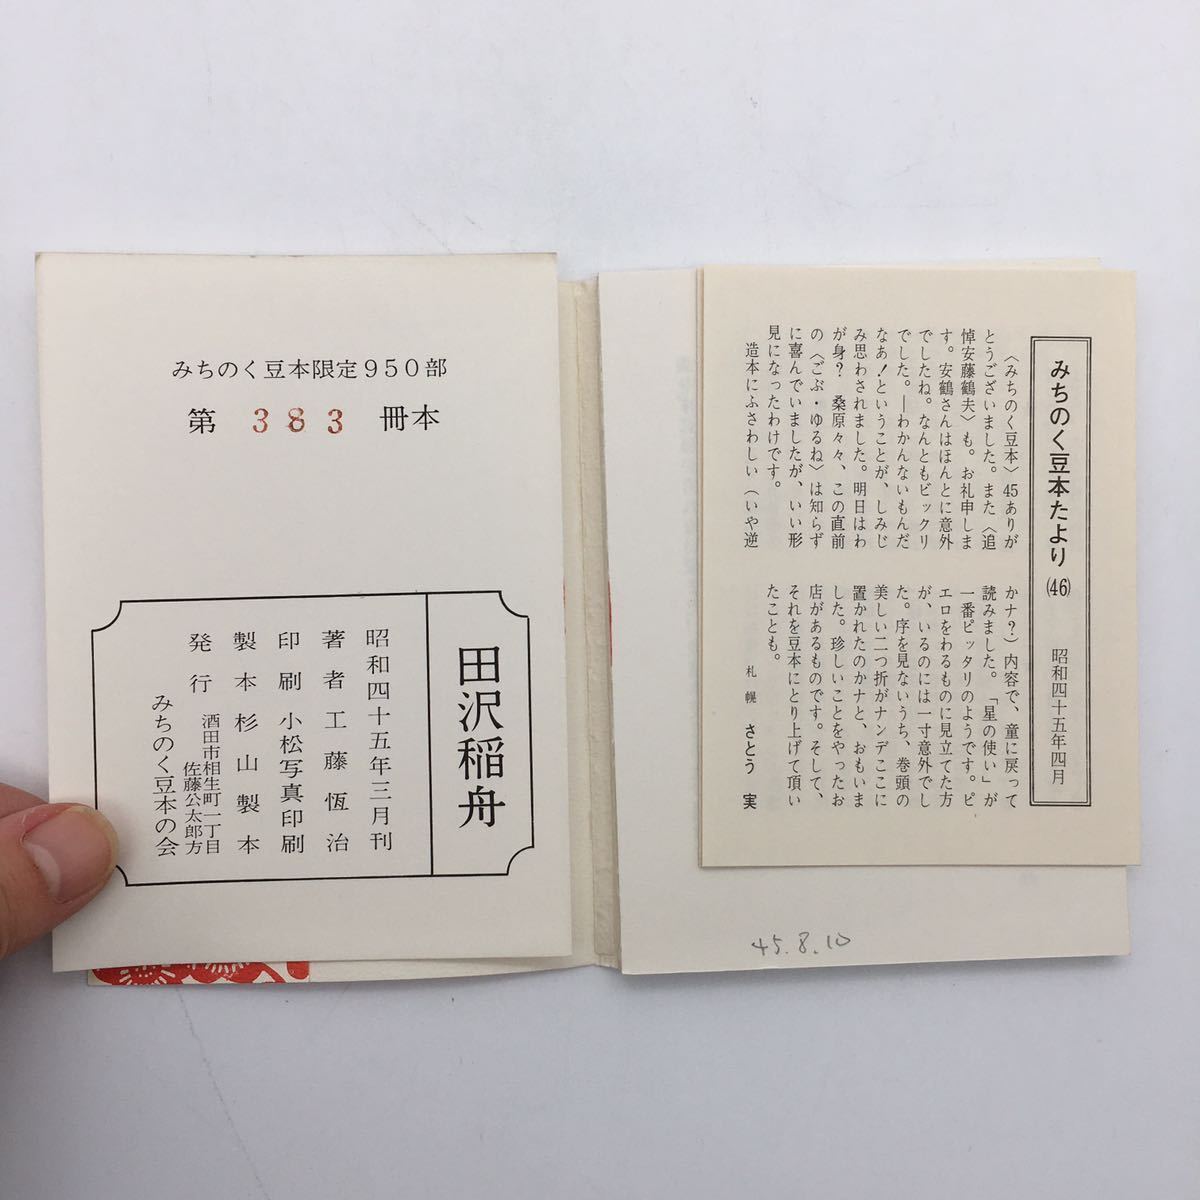 みちのく豆本限定950部
第 383 冊本
田沢稲舟
昭和四十五年三月刊
著者工藤恆治
印刷小松写真印刷
製本杉山製本
発行 酒田市相生町一丁目
佐藤公太郎方
みちのく豆本の会
みちのく豆本たより (46) 昭和四十五年四月
〈みちのく豆本〉45ありが
とうございました。また〈追
悼安藤鶴夫〉も。お礼申しま
す。安鶴さんはほんとに意外
でしたね。なんともビックリ
でした。―わかんないもんだ
なあ!ということが、しみじ
み思わされました。明日はわ
が身? 桑原々々、この直前
の〈ごぶ・ゆるね〉は知らず
に喜んでいましたが、いい形
見になったわけです。
造本にふさわしい(いや逆
かナ?)内容で、童に戻って
読みました。「星の使い」が
一番ピッタリのようです。ピ
エロをわるものに見立てた方
が、いるのには一寸意外でし
た。序を見ないうち、巻頭の
美しい二つ折がナンデここに
置かれたのカナと、おもいま
した。珍しいことをやったお
店があるものです。そして、
それを豆本にとり上げて頂い
たことも。
札幌 さとう 実
45.8.10